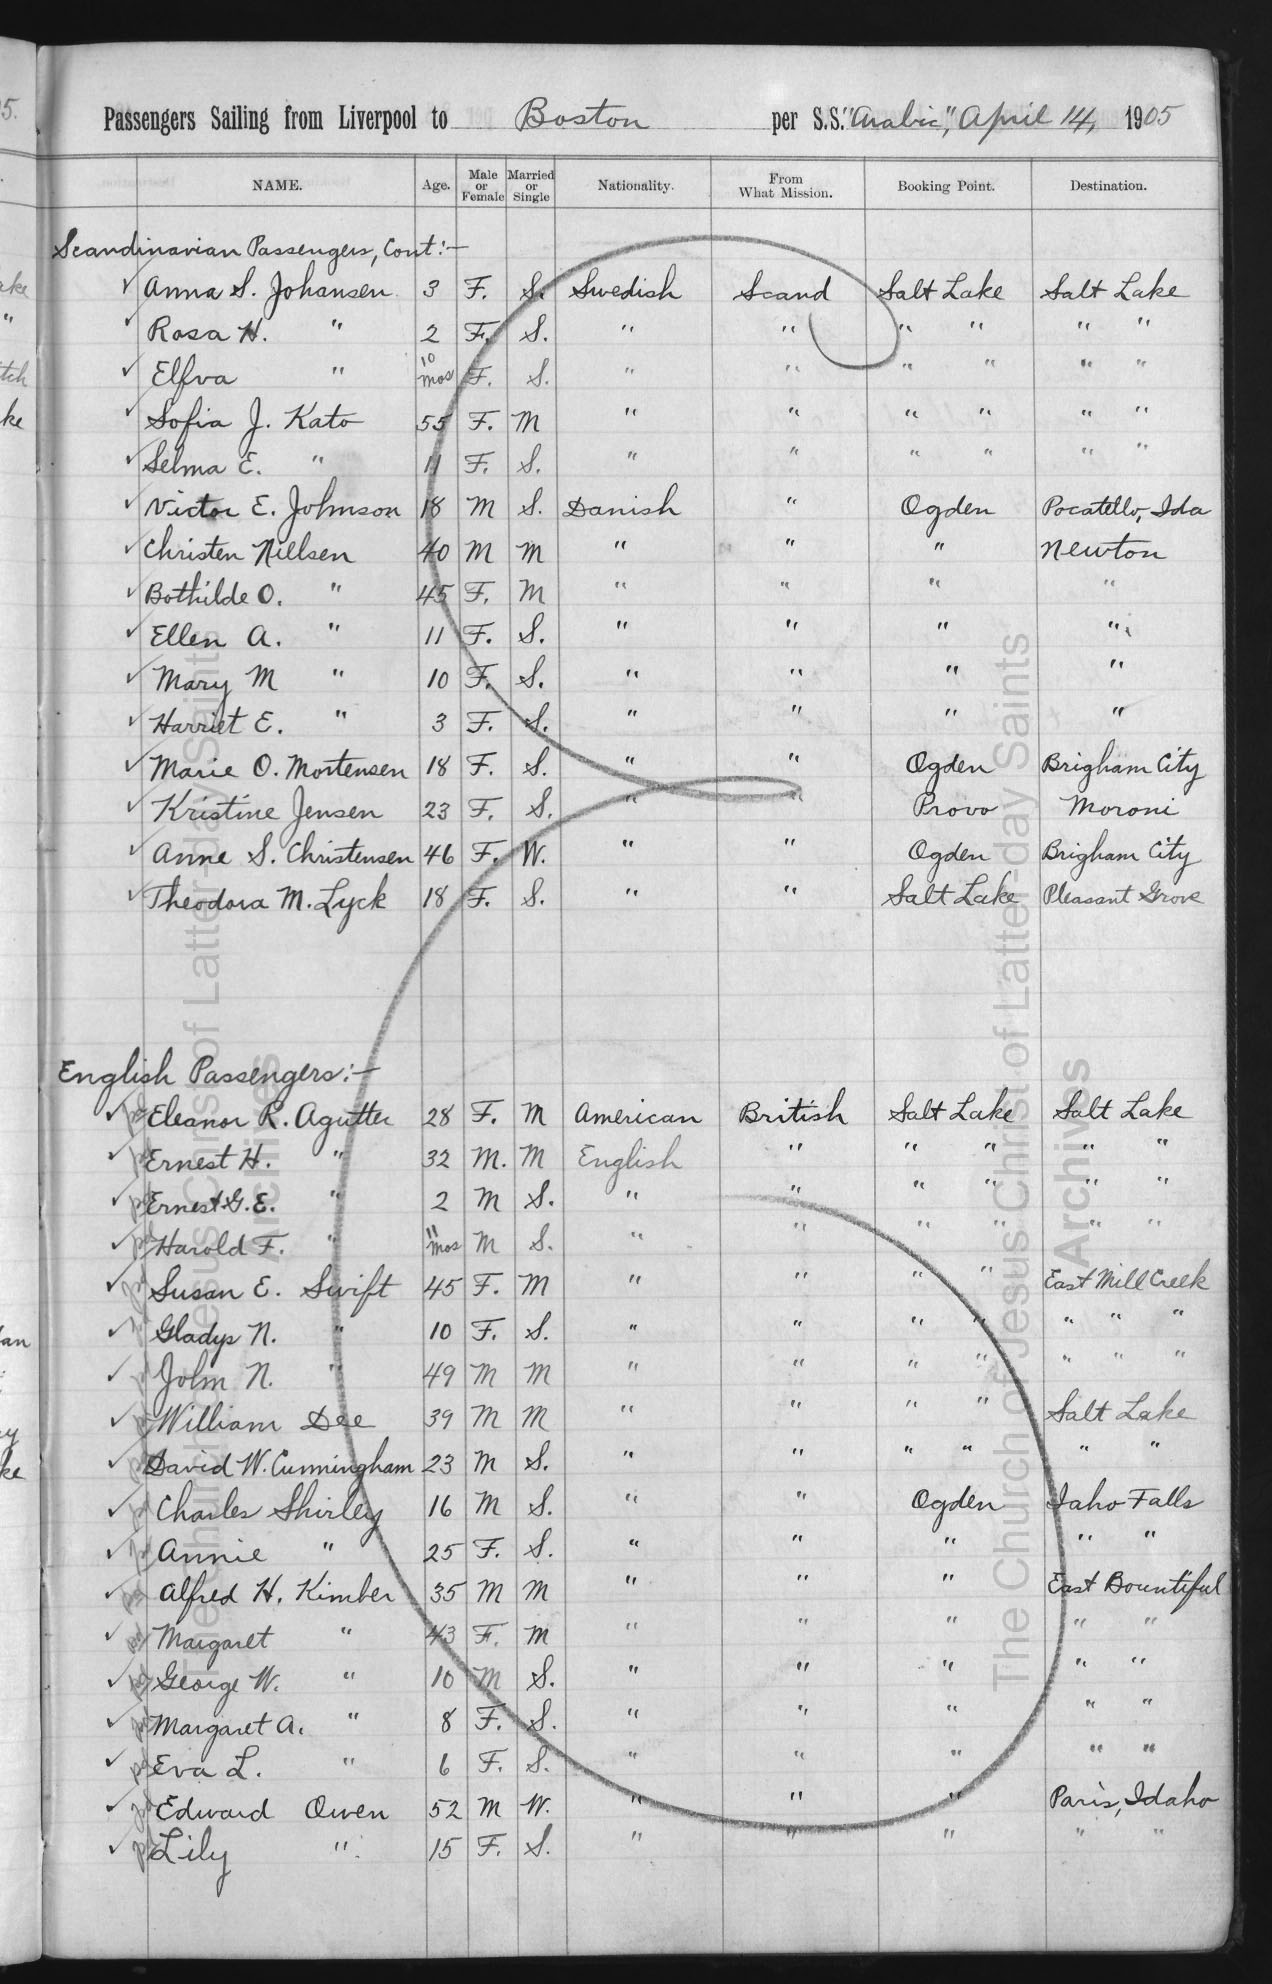 Passengers Sailing from Liverpool to Boston per S.S. "Arabic," April 14, 1905
NAME. Age. Male or Female Married or Single Nationality. From What Mission. Booking Point. Destination.
Scandinavian Passengers, Cont:—
✓ Anna S. Johansen 3 F. S. Swedish Scand Salt Lake Salt Lake
✓ Rosa H. " 2 F. S. " " " " " "
✓ Elfva " 10 mos F. S. " " " " " "
✓ Sofia J. Kato 55 F. M " " " " " "
✓ Selma E. " 11 F. S. " " " " " "
✓ Victor E. Johnson 18 M S. Danish " Ogden Pocatello, Ida
✓ Christen Nillsen 40 M M " " " Newton
✓ Bothilde O. " 45 F. M " " " "
✓ Ellen A. " 11 F. S. " " " "
✓ Mary M " 10 F. S. " " " "
✓ Harriet E. " 3 F. S. " " " "
✓ Marie O. Mortensen 18 F. S. " " Ogden Brigham City
✓ Kristine Jensen 23 F. S. " " Provo Moroni
✓ Anne S. Christensen 46 F. W. " " Ogden Brigham City
✓ Theodora M. Lyck 18 F. S. " " Salt Lake Pleasant Grove
English Passengers:—
✓ Eleanor R. Agutter 28 F. M American British Salt Lake Salt Lake
✓ Ernest H. " 32 M. M English " " " " "
✓ Ernest G. E. " 2 M S. " " " " " "
✓ Harold F. " 11 mos M S. " " " " " "
✓ Susan E. Swift 45 F. M " " " " East Mill Creek
✓ Gladys N. " 10 F. S. " " " " " " "
✓ John N. " 49 M M " " " " " " "
✓ William Dee 39 M M " " " " Salt Lake
✓ David W. Cunningham 23 M S. " " " " " "
✓ Charles Shirley 16 M S. " " Ogden Iaho Falls
✓ Annie " 25 F. S. " " " " "
✓ Alfred H. Kimber 35 M M " " " East Bountiful
✓ Margaret " 43 F. M " " " " "
✓ George W. " 10 M S. " " " " "
✓ Margaret A. " 8 F. S. " " " " "
✓ Eva L. " 6 F. S. " " " " "
✓ Edward Owen 52 M W. " " " Paris, Idaho
✓ Lily " 15 F. S. " " " " "
The Church of Jesus Christ of Latter-day Saints
Archives
The Church of Jesus Christ of Latter-day Saints
Archives